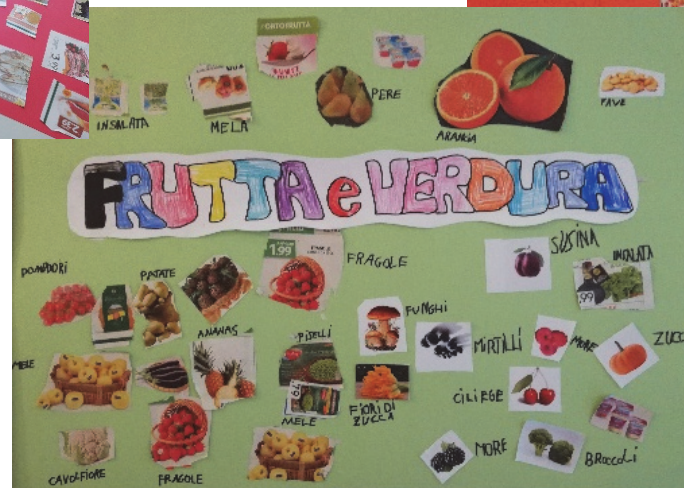 ORTOFRUTTA
INSALATA
MELA
PERE
ARANCIA
FAVE
FRUTTA e VERDURA
POMODORI
PATATE
1.99
FRAGOLE
SUSINA
INSALATA
.99
ANANAS
PISELLI
FUNGHI
MIRTILLI
MORE
ZUCC
MELE
CILIEGE
FIORI DI
ZUCCA
MELE
CAVOLFIORE
FRAGOLE
MORE
BROCCOLI
2.39